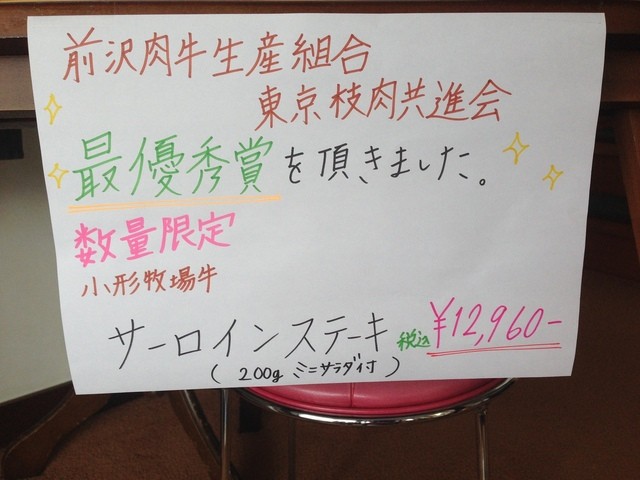 前沢肉牛生産組合
東京枝肉共進会
最優秀賞を頂きました。
数量限定
小形牧場牛
サーロインステーキ 税込 ¥12,960-
(200g ミニサラダ付)